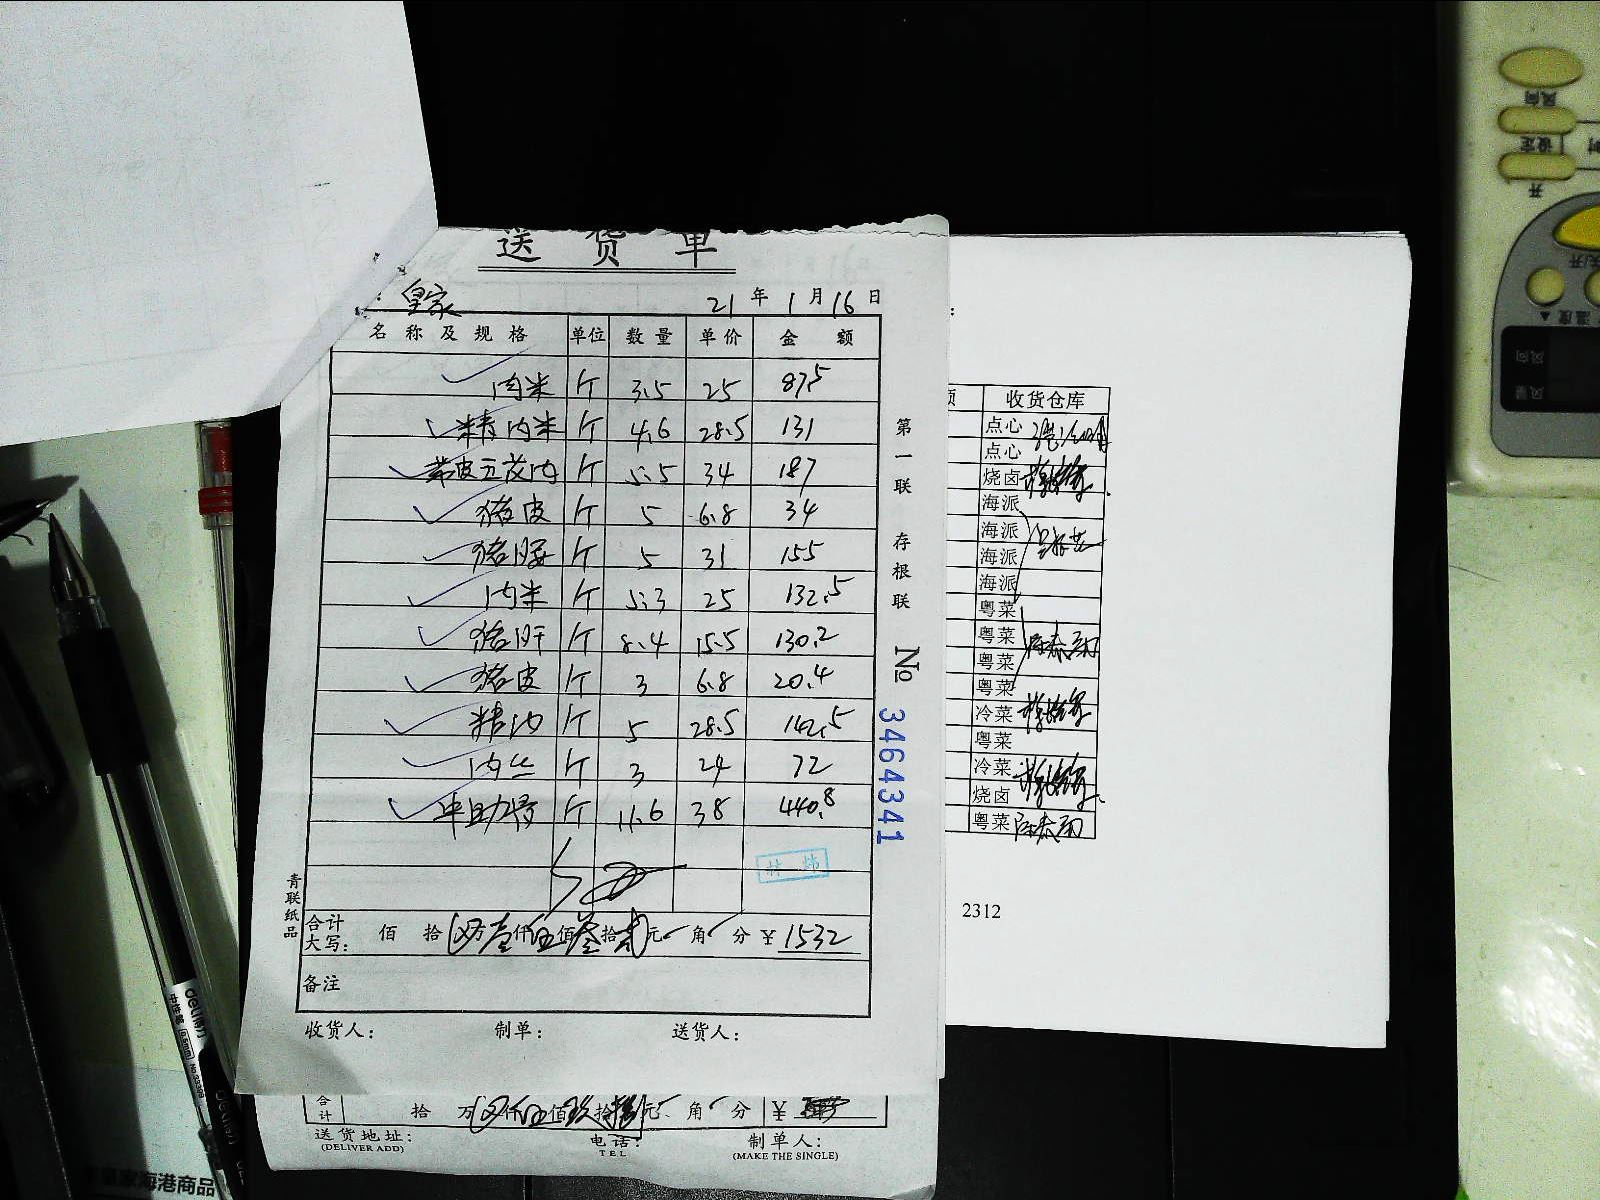 送货单
: 皇家 21年1月16日
名称及规格 单位 数量 单价 金额
肉米 斤 3.5 25 87.5
精肉米 斤 4.6 28.5 131
带皮五花肉 斤 5.5 34 187
猪皮 斤 5 6.8 34
猪腰 斤 5 31 155
肉米 斤 5.3 25 132.5
猪肝 斤 8.4 15.5 130.2
猪皮 斤 3 6.8 20.4
精肉 斤 5 28.5 142.5
肉丝 斤 3 24 72
斤 11.6 38 440.8
合计
大写: 佰 拾 万壹仟伍佰叁拾贰元 角 分 ¥1532
备注
收货人: 制单: 送货人:
第一联 存根联 No 3464341
青联纸品
合计 拾 万 仟伍佰玖拾 元 角 分 ¥
送货地址: 电话: 制单人:
(DELIVER ADD) TEL (MAKE THE SINGLE)
额 收货仓库
点心
点心
烧卤
海派
海派
海派
海派
粤菜
粤菜
粤菜
粤菜
冷菜
粤菜
冷菜
烧卤
粤菜
2312
风向
设定
开
温度
风向
风量
deli得力
中性笔 0.5mm
皇家海港商品